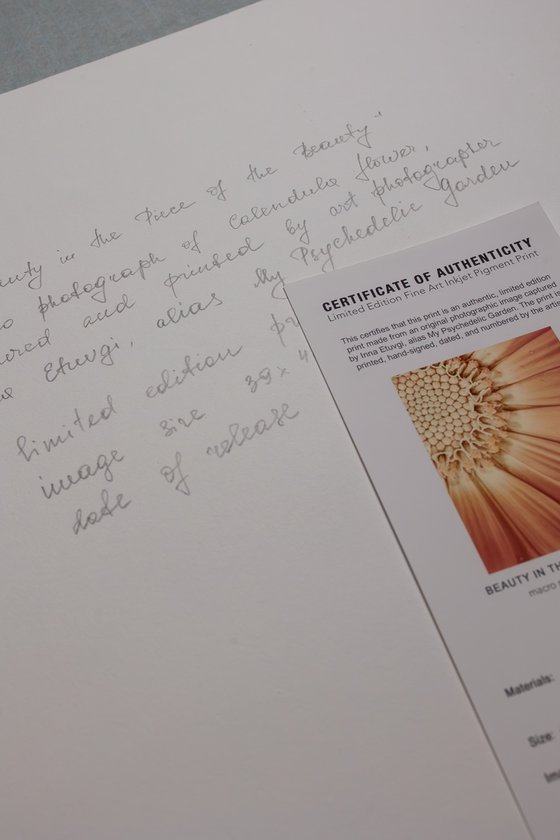 in the Piece of the Beauty"
photograph of Calendula flower,
and printed by art photographer
Etuvgi, alias My Psychedelic Garden
limited edition
image size 39×4
date of release
CERTIFICATE OF AUTHENTICITY
Limited Edition Fine Art Inkjet Pigment Print
This certifies that this print is an authentic, limited edition
print made from an original photographic image captured
by Inna Etuvgi, alias My Psychedelic Garden. The print is
printed, hand-signed, dated, and numbered by the artist
BEAUTY IN
macro
Materials:
Size: